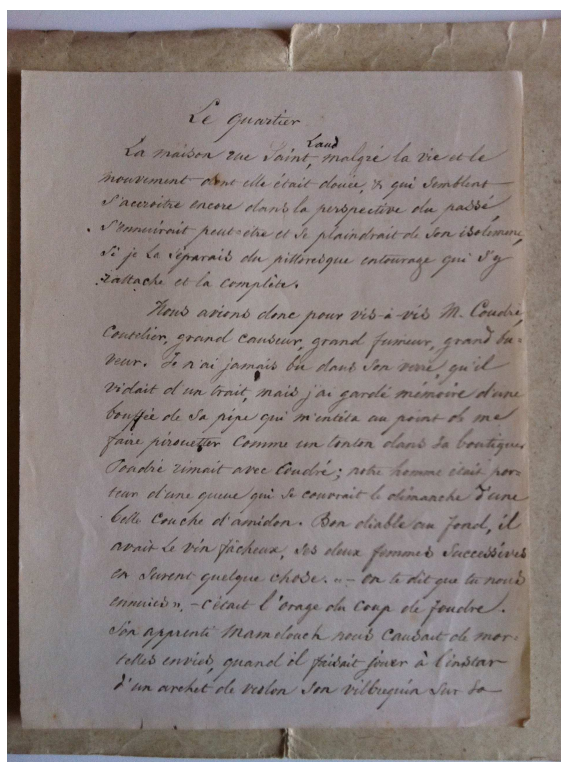 Le quartier
La maison rue Saint Laud, malgré la vie et le
mouvement dont elle était douée, & qui semblent
s'accroître encore dans la perspective du passé
s'ennuirait peut-être et se plaindrait de son isolement,
si je la séparais du pittoresque entourage qui s'y
rattache et la complète.
Nous avions donc pour vis-à-vis M. Coudré,
Coutelier, grand causeur, grand fumeur, grand bu-
veur. Je n'ai jamais bu dans son verre, qu'il
vidait d'un trait, mais j'ai gardé mémoire d'une
bouffée de sa pipe qui m'entêta au point de me
faire pirouetter comme un tonton dans sa boutique.
Poudré rimait avec Coudré; notre homme était por-
teur d'une queue qui se couvrait le dimanche d'une
belle couche d'amidon. Bon diable au fond, il
avait le vin fâcheux, ses deux femmes successives
en surent quelque chose. "– on te dit que tu nous
ennuies", – c'était l'orage du coup de foudre.
Son apprenti Mamelouch nous causait de mor-
telles envies, quand il faisait jouer à l'instar
d'un archet de violon son vilbrequin sur sa